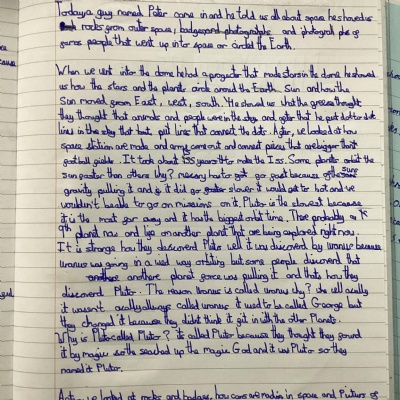 Today a guy named Peter came in and he told us all about space he showed us
rocks from outer space, badges and photographs and photograph phs of
people that went up into space or circled the Earth.
When we went into the dome he had a projector that made stars in the dome he showed
us how the stars and the planets circle around the Earth. Sun and how the
Sun moved from East, west, south. He showed us what the greeces thought
they thought that animals and people were in the sky and after that he put dot to dot
lines in the sky that but put lines that connect the dots. After, we looked at how
space station are made and come out and connect peices that are bigger than
football pichs. It took about years to make the Iss. Some planets orbit the
sun faster than others why? mercury has to go fast because of the suns
gravity pulling it and if it did go slower it would get to hot and we
wouldn't be able to go on missions on it. Pluto is the slowest because
it is the most far away and it has the biggest orbit time. There probably is a
9th planet now and life on another planet that are being explored right now.
It is strange how they descoverd Pluto well it was discoverd by uranus because
uranus was going in a wierd way orbiting but some people discoverd that
another planet force was pulling it and thats how they
discoverd Pluto. The reason uranus is called uranus why? she well acally
it wasn't acally always called uranus it used to be called George but
they changed it because they didn't think it fit in with the other Planets.
Why is Pluto called Pluto? its called Pluto because they thought they found
it by magic so the seached up the magic God and it was Pluto so they
named it Pluto.
we looked at rocks and badges, how cons are made in space and Picturs of